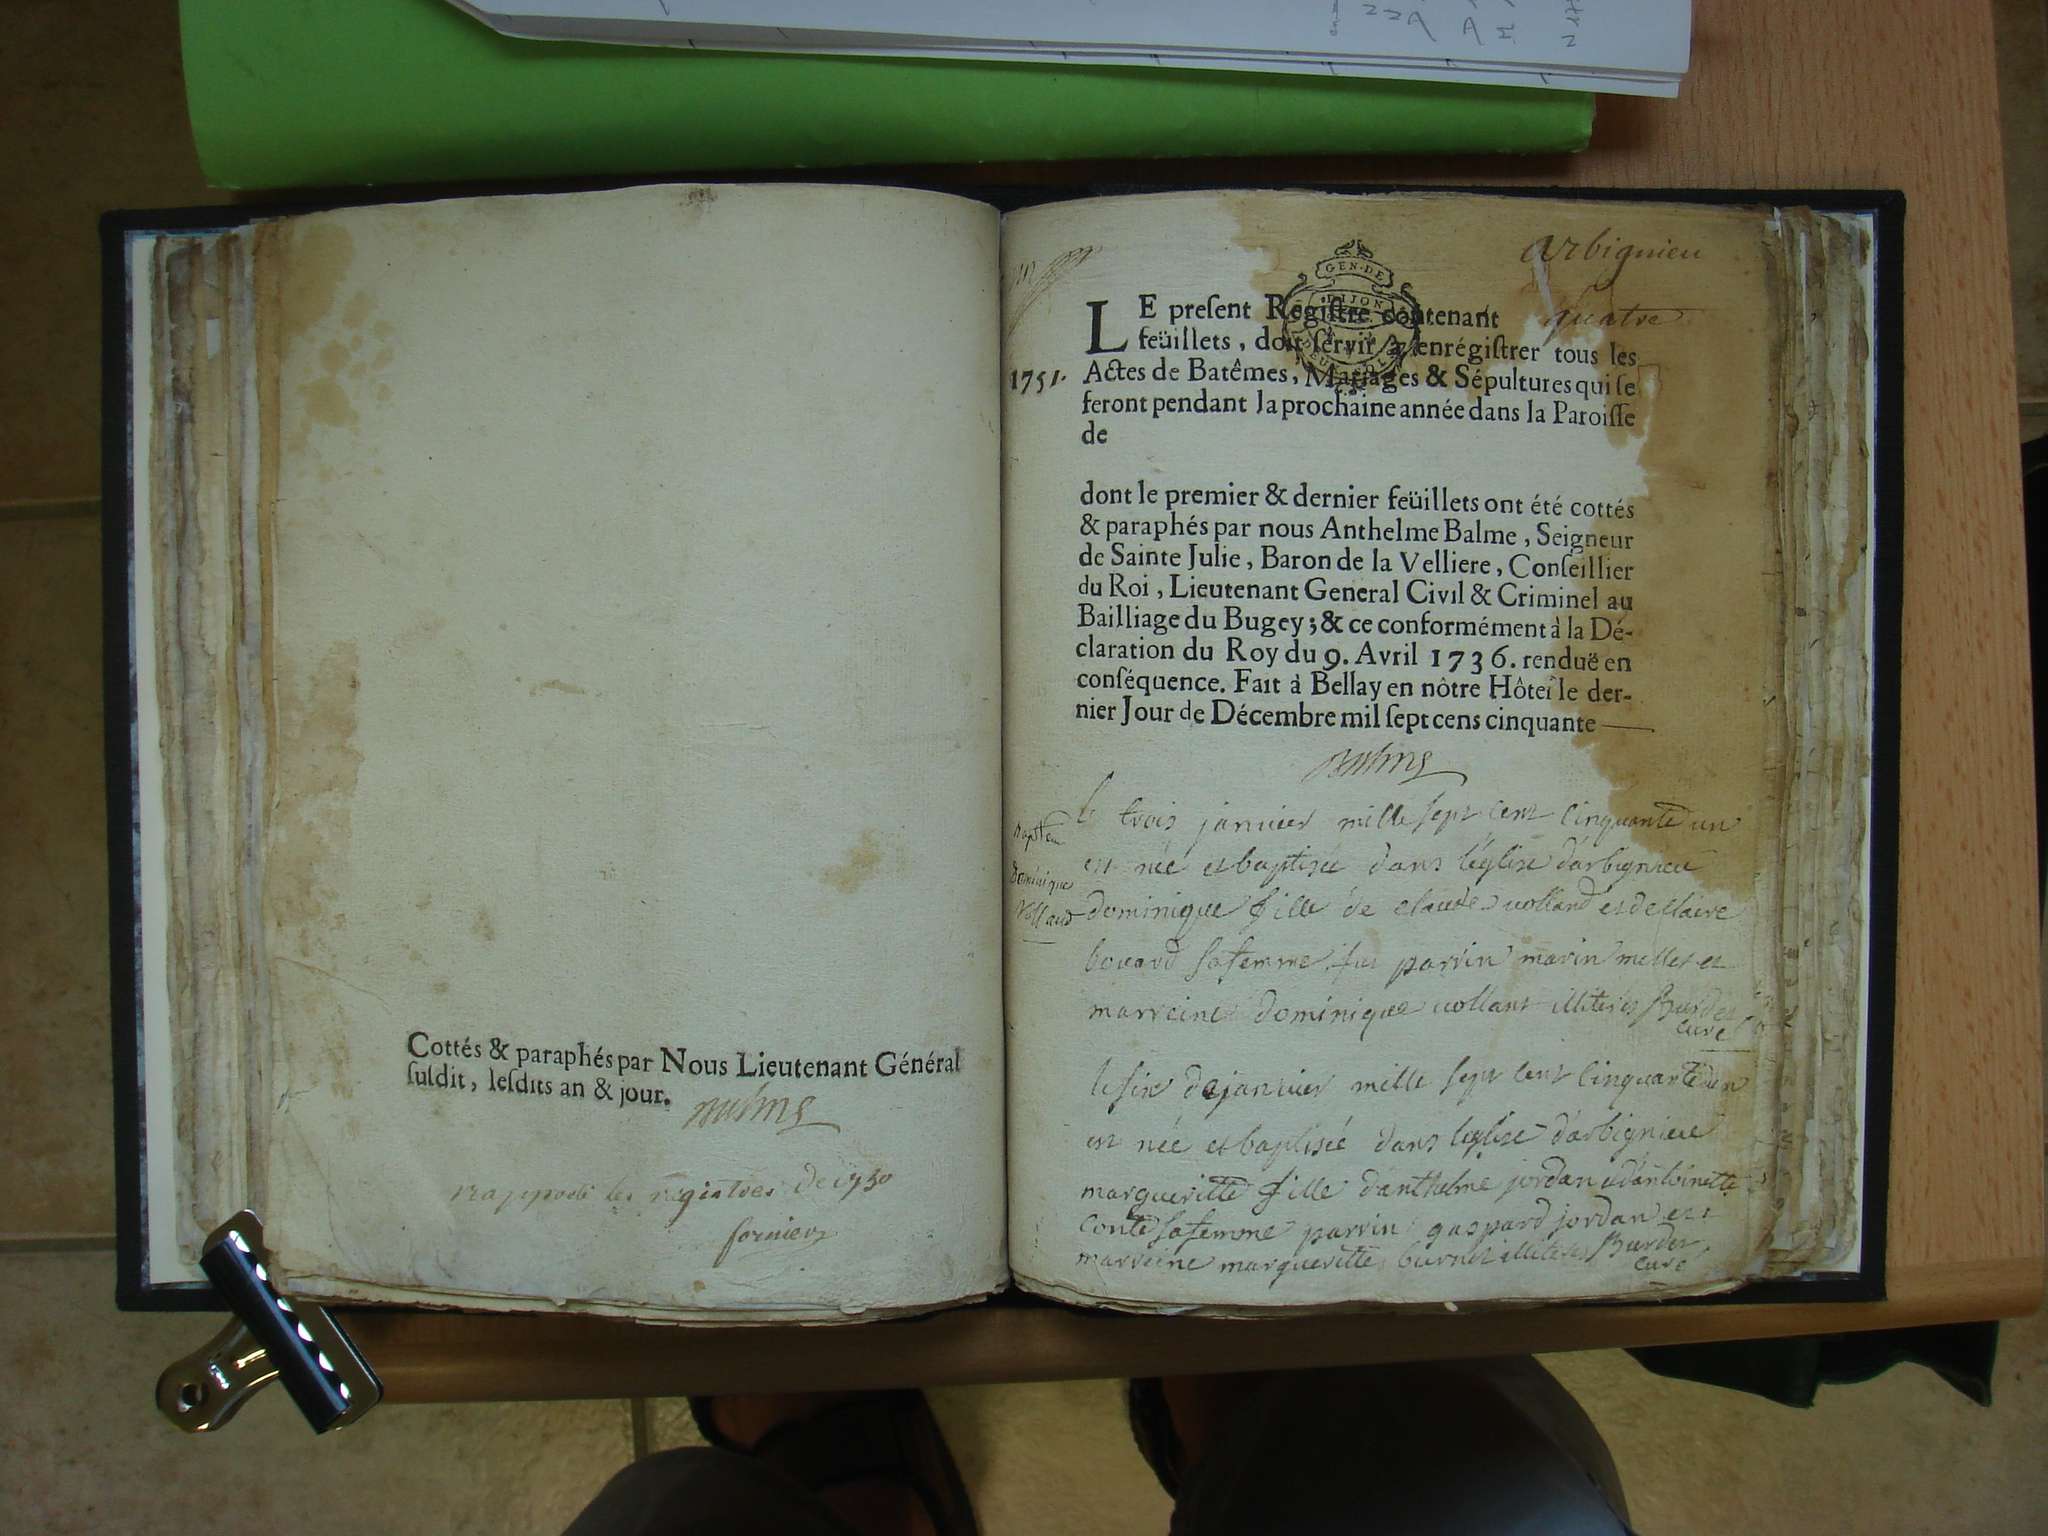 Cottés & paraphés par Nous Lieutenant Général
susdit, lesdits an & jour.
rapporté les registres de 1750
fornier
Arbignieu
GEN·DE
DIJON
LE present Régistre contenant quatre
feüillets, doit servir à enrégistrer tous les
1751. Actes de Batêmes, Mariages & Sépultures qui se
feront pendant la prochaine année dans la Paroisse
de
dont le premier & dernier feüillets ont été cottés
& paraphés par nous Anthelme Balme, Seigneur
de Sainte Julie, Baron de la Velliere, Conseillier
du Roi, Lieutenant General Civil & Criminel au
Bailliage du Bugey; & ce conformément à la Dé-
claration du Roy du 9. Avril 1736. renduë en
conséquence. Fait à Bellay en nôtre Hôtel le der-
nier Jour de Décembre mil sept cens cinquante
Dominique
Volland
le trois janvier mille sept cent cinquante un
est née et baptisée dans l'église d'arbignieu
dominique fille de claude volland et de claire
bouard sa femme fut parrin marin mellet et
marreine dominique vollant illiteres Burdet
curé
le six de janvier mille sept cent cinquante un
est née et baptisée dans l'eglise d'arbignieu
margueritte fille d'anthelme jordan et d'antoinette
conte sa femme parrin gaspard jordan et
marreine margueritte burnet illiteres Burdet
curé